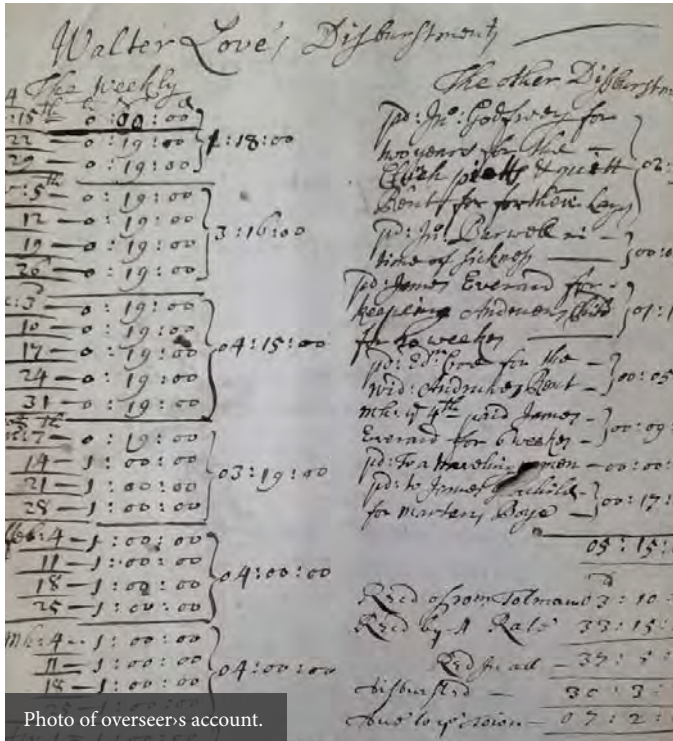 Walter Love's Disburstments
The Weekly
:15th 0:00:00
22 — 0:19:00
29 — 0:19:00
1:18:00
:5th 0:19:00
12 — 0:19:00
19 — 0:19:00
26 — 0:19:00
3:16:00
:3 — 0:19:00
10 — 0:19:00
17 — 0:19:00
24 — 0:19:00
31 — 0:19:00
04:15:00
:7 — 0:19:00
14 — 1:00:00
21 — 1:00:00
28 — 1:00:00
03:19:00
feb:4 — 1:00:00
11 — 1:00:00
18 — 1:00:00
25 — 1:00:00
04:00:00
:4 — 1:00:00
11 — 1:00:00
18 — 1:00:00
04:00:00
The other Disburstm
pd: Jno: Godfrey for
two years for the
& quitt
Rent for
02:
pd: Jno: Burwell in
time of sickness
00:0
pd: James Everard for
keeping Andrewes Child
for weekes
01:1
pd: Edm for the
wid: Andrewes Rent
00:05
4th paid James
Everard for 6 weekes
00:09
pd: To a traveling women — 00:00:
pd: to James
for martens Boye
00:17:
05:15:
Recd from Tolman 03:10:
Recd by A Rate 33:15:
Recd In all —
disbursted — 30:3:
07:2:
Photo of overseer›s account.